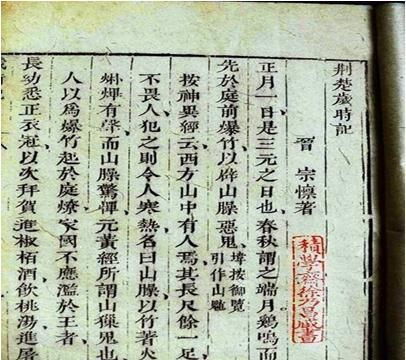 荆楚歲時記
晉 宗懍著
積學齋徐乃昌藏書
正月一日是三元之日也春秋謂之端月鷄鳴而
先於庭前爆竹以辟山臊惡鬼
按御覽
引作山魈
按神異經云西方山中有人焉其長尺餘一足
不畏人犯之則令人寒熱名曰山臊以竹著火
烞熚有聲而山臊驚憚元黄經所謂山𤢖鬼也
人以為爆竹起於庭燎家國不應濫於王者
長幼悉正衣冠以次拜賀進椒栢酒飲桃湯進屠